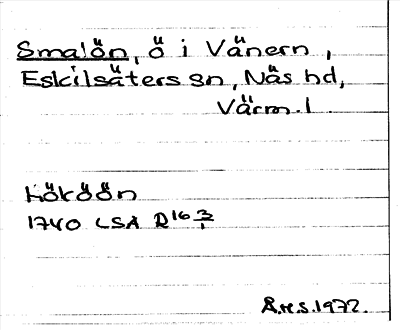 Smalön, ö i Vänern,
Eskilsäters sn, Näs hd,
Värm. l
1740 LSA R16 3/1
Å.H.S. 1972.